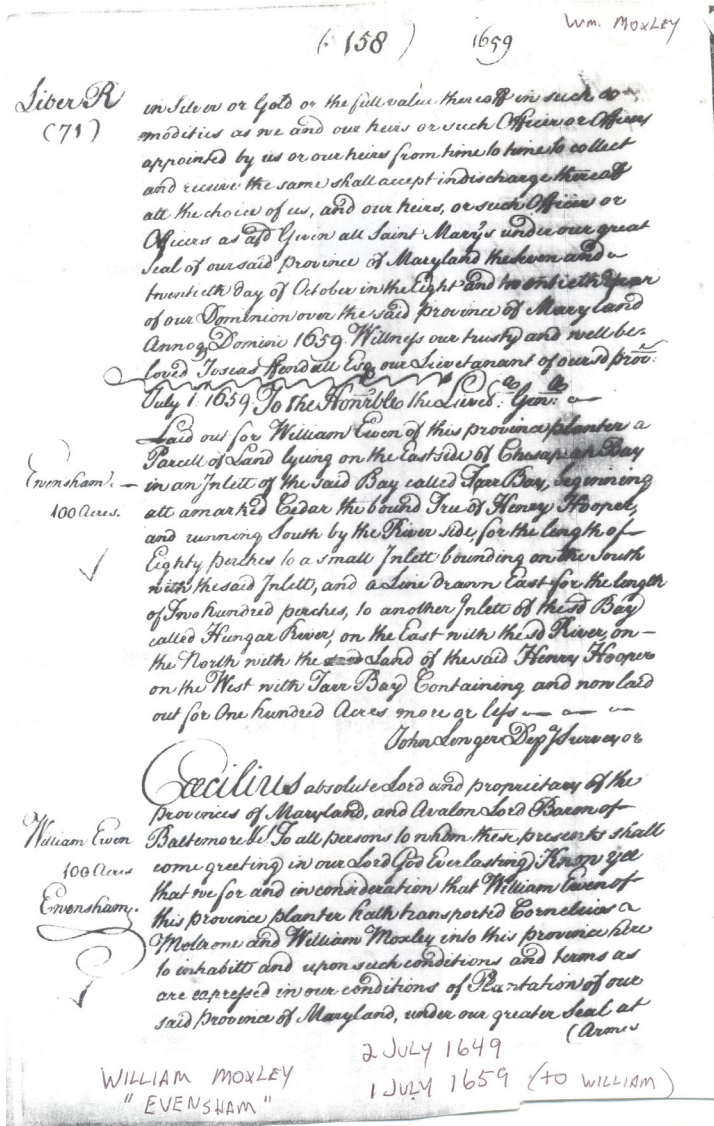 Wm. MOXLEY
( 158 ) 1659
Liber R
(71)
in Silver or Gold or the full value thereoff in such Co-
modities as we and our heirs or such Officer or Officers
appointed by us or our heirs from time to time to collect
and receive the same shall accept in discharge thereoff
att the choice of us, and our heirs, or such Officer or
Officers as afd Given att Saint Marys under our great
Seal of our said province of Maryland the Seven and
twentieth day of October in the Eight and twentieth Year
of our Dominion over the said province of Maryland
Annoq Domini 1659. Witness our trusty and well be-
loved Josias Fendall Esq. our Lievetanant of our sd prov:
July 1. 1659. To the Honrble the Lievt: Gen:
Laid out for William Ewen of this province planter a
Parcell of Land lyeing on the East side of Chesapeak Bay
in an Inlett of the said Bay called Tarr Bay, beginning
att a marked Cedar the bound Tree of Henry Hooper,
and running South by the River side, for the length of
Eighty perches to a small Inlett bounding on the South
with the said Inlett, and a Line drawn East for the length
of Two hundred perches, to another Inlett of the sd Bay
called Hungar River, on the East with the sd River, on
the North with the Land of the said Henry Hooper
on the West with Tarr Bay Containing and now laid
out for One hundred Acres more or less
John Lenger Depy Surveyor
Ewensham.
100 Acres.
Cæcilius absolute Lord and proprietary of the
provinces of Maryland, and Avalon Lord Baron of
Baltemore &c. To all persons to whom these presents shall
come greeting in our Lord God Everlasting Know yee
that we for and in consideration that William Ewen of
this province planter hath transported Cornelius
Molrone and William Moxley into this province here
to inhabitt and upon such conditions and terms as
are expressed in our conditions of Plantation of our
said province of Maryland, under our greater Seal at
(Armes
William Ewen
100 Acres
Ewensham.
WILLIAM MOXLEY
"EVENSHAM"
2 JULY 1649
1 JULY 1659 (TO WILLIAM)